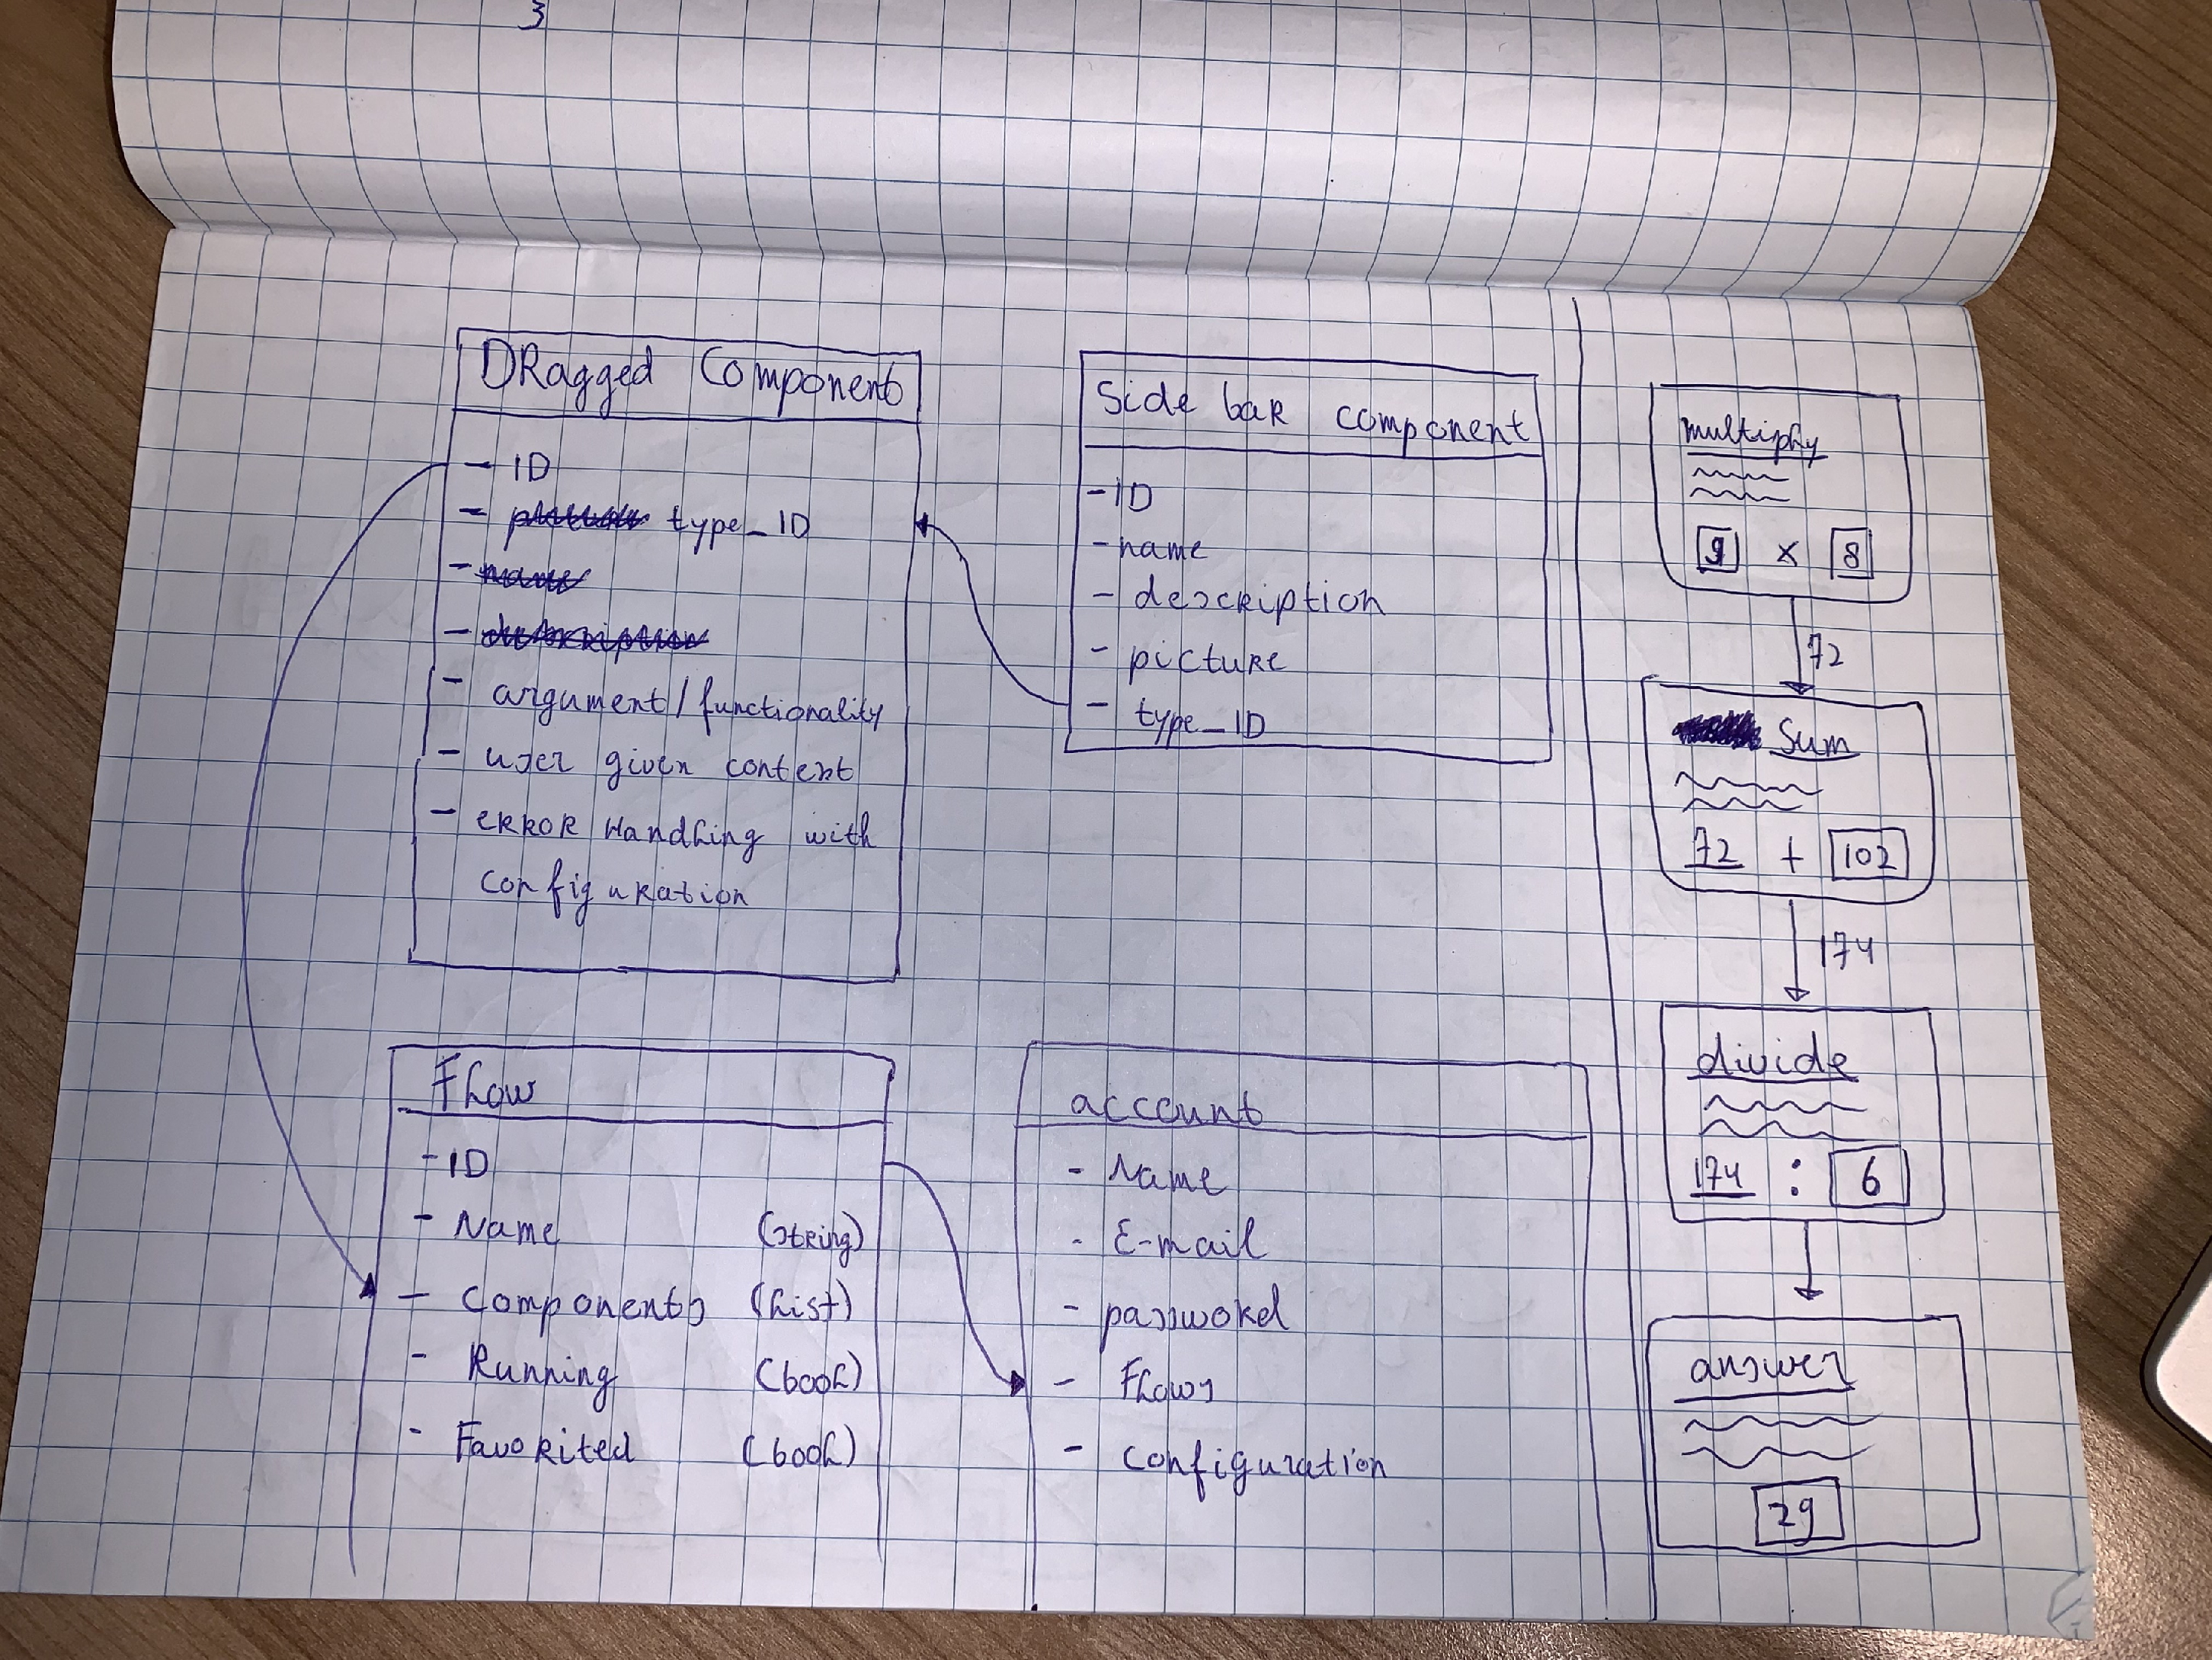 3
DRagged Component
- ID
- type_ID
- name
- description
- argument/functionality
- user given context
- ERROR Handling with
configuration
Side baR component
- ID
- name
- description
- picture
- type_ID
Flow
- ID
- Name (string)
- Components (List)
- Running (bool)
- Favorited (bool)
account
- Name
- E-mail
- password
- Flows
- configuration
multiply
9 × 8
72
Sum
72 + 102
174
divide
174 : 6
answer
29